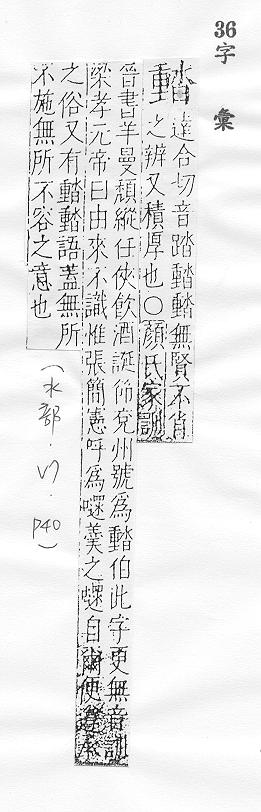 36字 彙
達合切音踏無賢不肖
之辨又積厚也○顏氏家訓
晉書羊曼頹縱任俠飲酒誕節兗州號爲伯此字更無音訓
梁孝元帝曰由來不識惟張簡憲呼爲嚃羹之嚃自爾便遵承
之俗又有語蓋無所
不施無所不容之意也
(水部.17.P40)